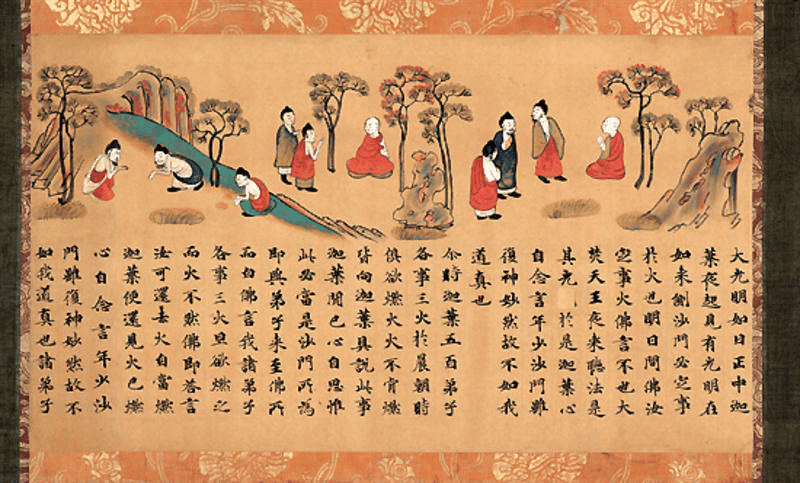 大光明如日正中迦
葉夜起見有光明在
如来側沙門必定事
於火也明日問佛汝
定事火佛言不也大
梵天王夜来聽法是
其光於是迦葉心
自念言年少沙門雖
復神妙然故不如我
道真也
尒時迦葉五百弟子
各事三火於晨朝時
俱欲燃火火不肯燃
皆向迦葉具說此事
迦葉聞已心自思惟
此必當是沙門所為
即與弟子来至佛所
而白佛言我諸弟子
各事三火旦欲燃之
而火不然佛即答言
汝可還去火自當燃
迦葉便還見火已燃
心自念言年少沙
門雖復神妙然故不
如我道真也諸弟子